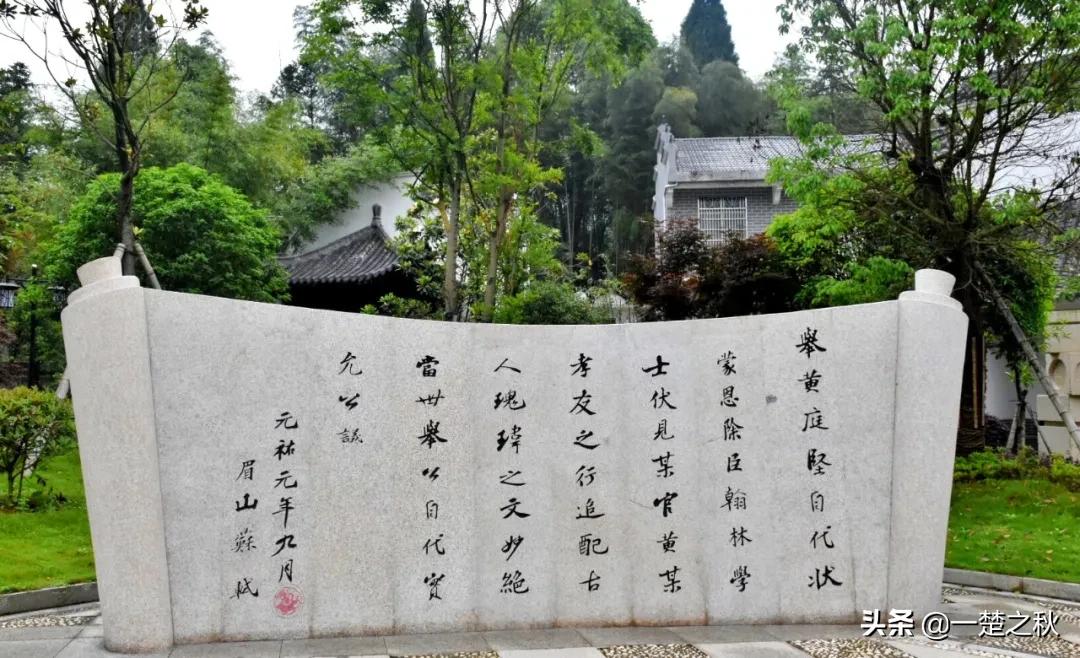 舉黄庭堅自代状
蒙恩除臣翰林學
士伏見某官黄某
孝友之行追配古
人瑰瑋之文妙絶
當世舉以自代實
允公議
元祐元年九月
眉山蘇軾
头条 @一楚之秋